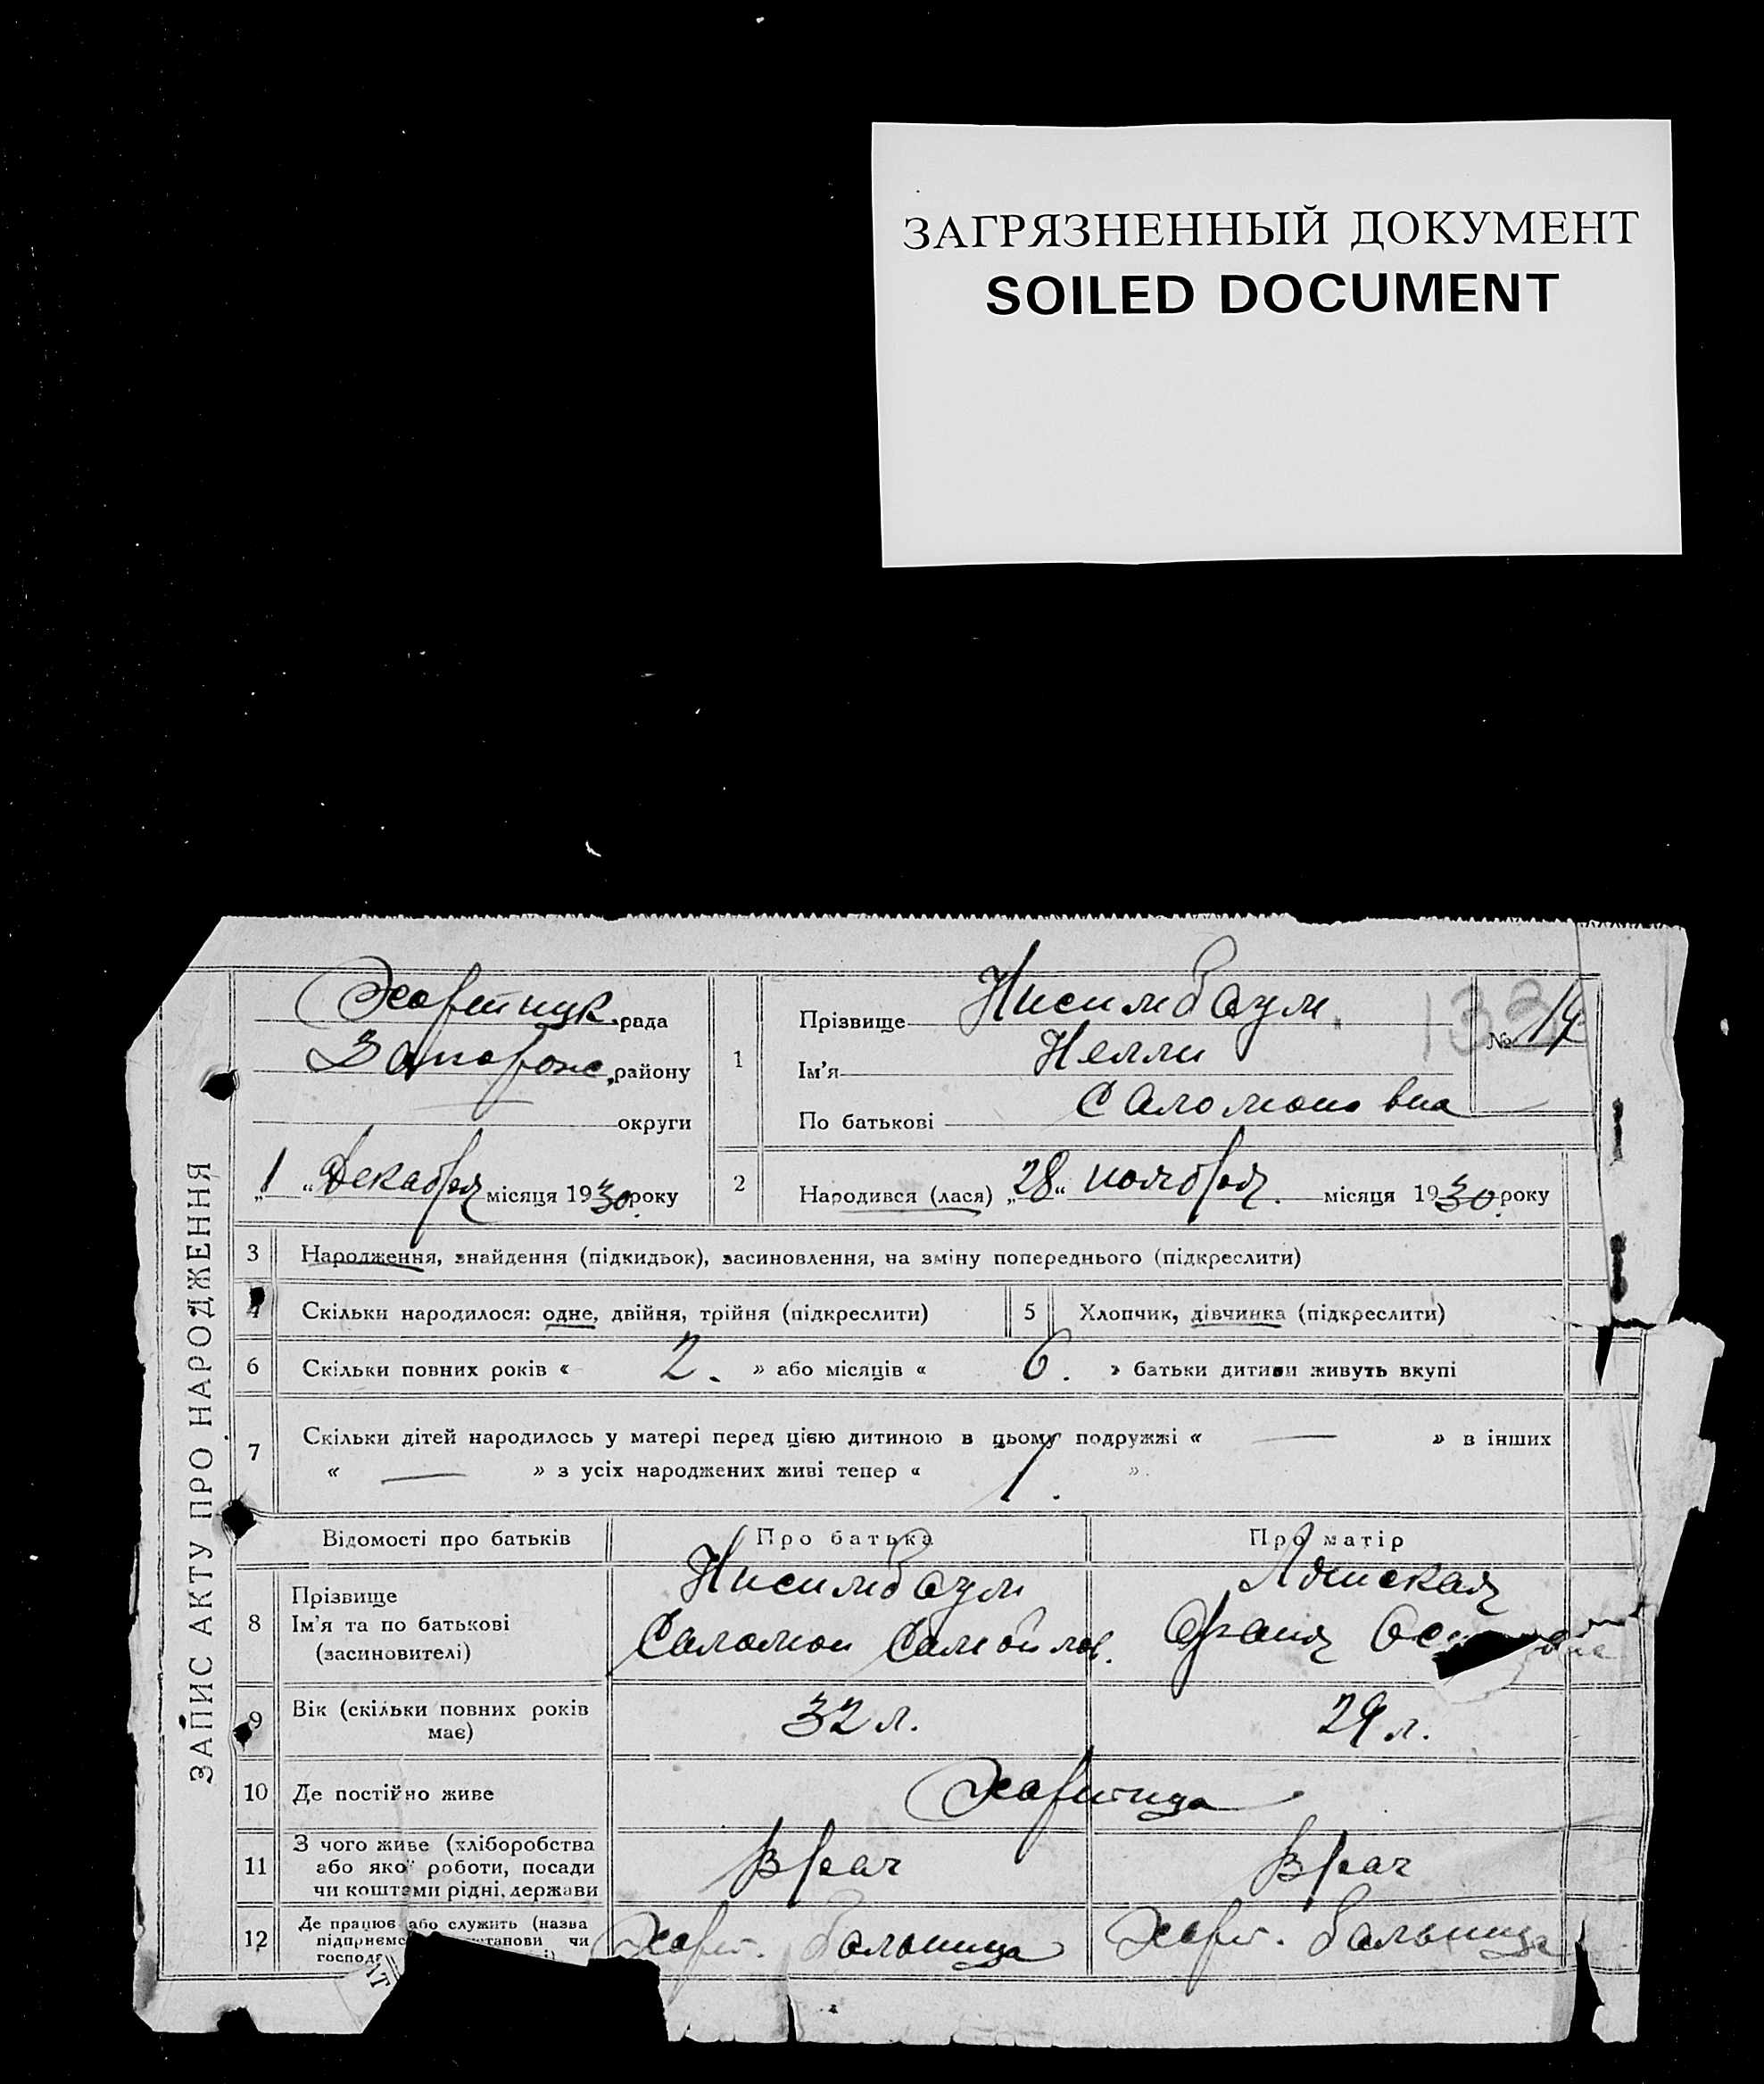 ЗАГРЯЗНЕННЫЙ ДОКУМЕНТ
SOILED DOCUMENT
ЗАПИС АКТУ ПРО НАРОДЖЕННЯ
Хортицк. рада
Запорож. району
округи
„1“ Декабря місяця 1930 року
1
Прізвище Нисимбаум
Ім'я Нелли
По батькові Саломоновна
132
№ 14
2 Народився (лася) „28“ ноября. місяця 1930. року
3 Народження, знайдення (підкидьок), засиновлення, на зміну попереднього (підкреслити)
4 Скільки народилося: одне, двійня, трійня (підкреслити) 5 Хлопчик, дівчинка (підкреслити)
6 Скільки повних років « 2. » або місяців « 6. » батьки дитини живуть вкупі
7 Скільки дітей народилось у матері перед цією дитиною в цьому подружжі « — » в інших
« — » з усіх народжених живі тепер « 1. »
Відомості про батьків Про батька Про матір
8 Прізвище
Ім'я та по батькові
(засиновителі)
Нисимбаум
Саломон Самойлов.
9 Вік (скільки повних років
має)
32 л. 29 л.
10 Де постійно живе Хортица
11 З чого живе (хліборобства
або якої роботи, посади
чи коштами рідні, держави
Врач Врач
12 Де працює або служить (назва
чи
Хорт. больница Хорт. больница